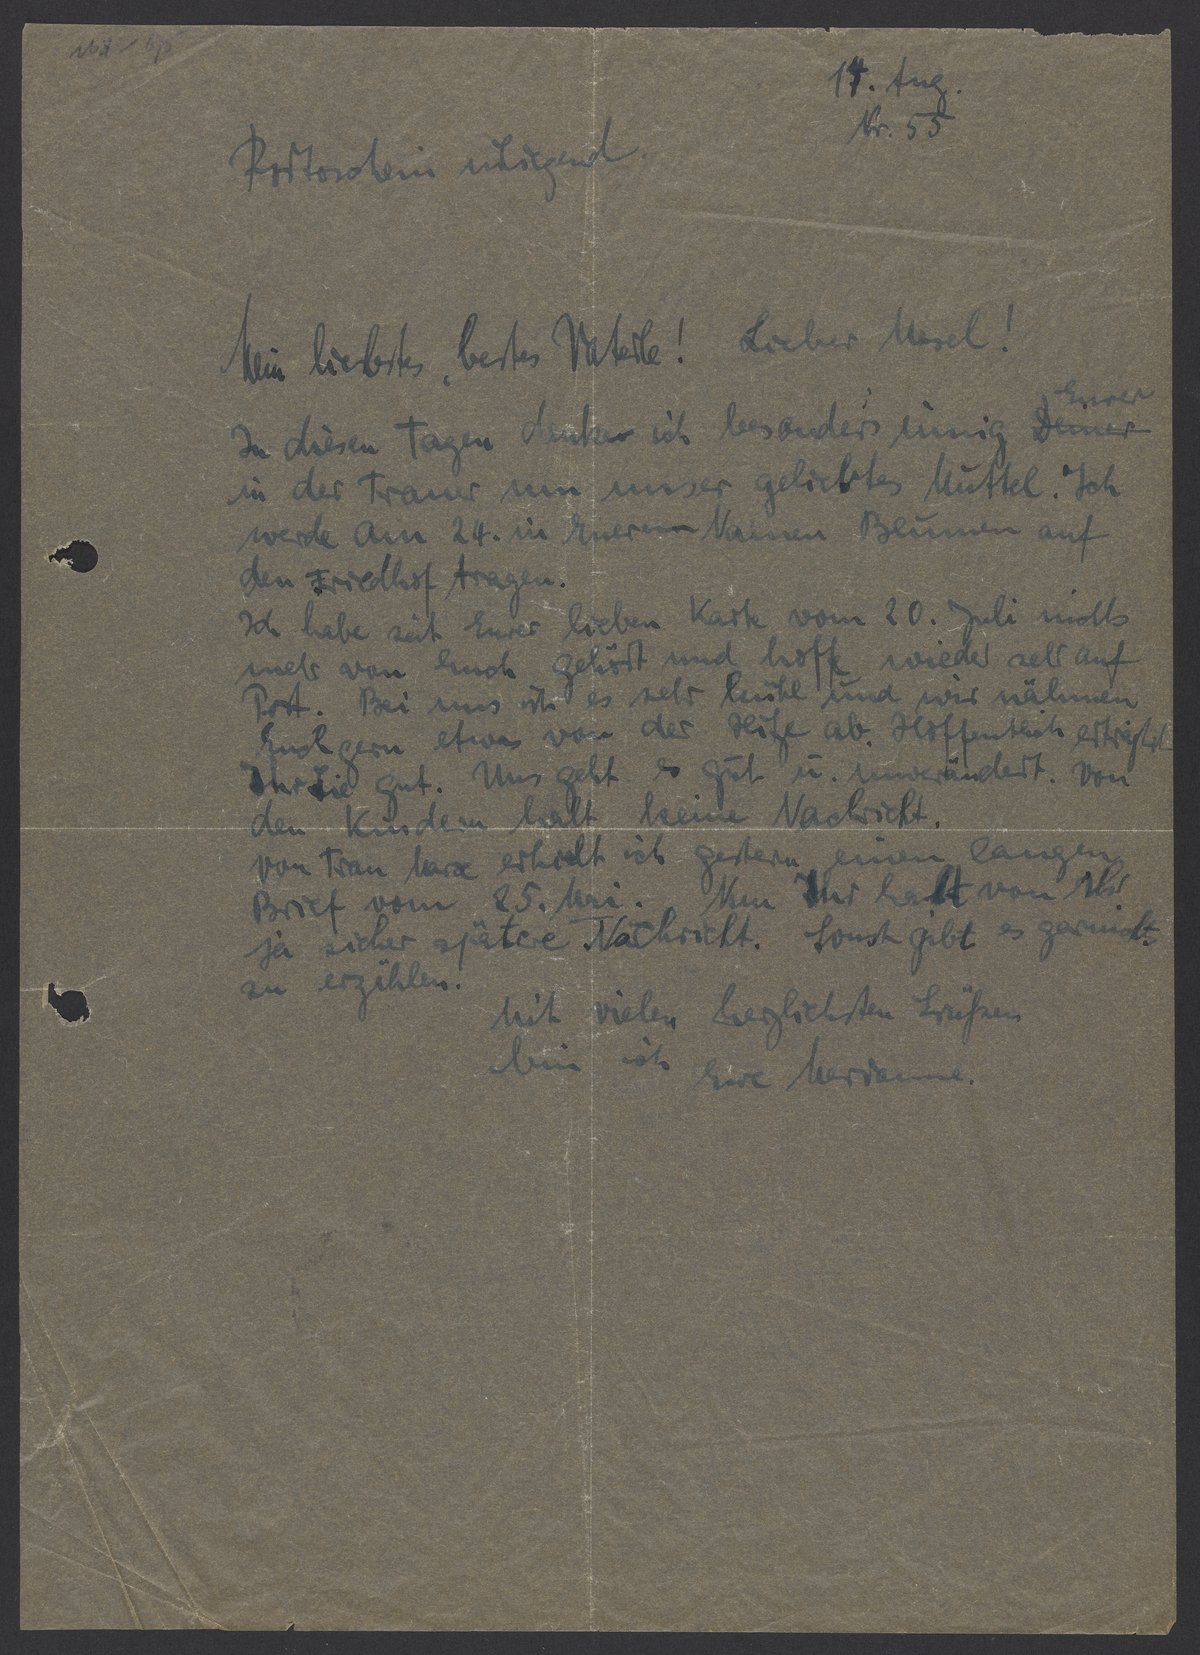 14. Aug.
Nr. 55
Portoschein
Mein liebstes, bestes Vaterle! Lieber Mosel!
In diesen Tagen denke ich besonders innig Deiner Eurer
in der Trauer um unser geliebtes Muttel. Ich
werde am 24. in Eurem Namen Blumen auf
den Friedhof tragen.
Ich habe seit Eurer lieben Karte vom 20. Juli nichts
mehr von Euch gehört und hoffe wieder sehr auf
Post. Bei uns ist es sehr kühl und wir nähmen
Euch gern etwas von der Hitze ab. Hoffentlich ertragt
Ihr sie gut. Uns geht es gut u. unverändert. Von
den Kindern halt keine Nachricht.
Von Frau Marx erhielt ich gestern einen langen
Brief vom 25. Mai. Nun Ihr habt von Ihr
ja sicher spätere Nachricht. Sonst gibt es garnichts
zu erzählen.
Mit vielen herzlichsten Grüßen
bin ich Eure Marianne.